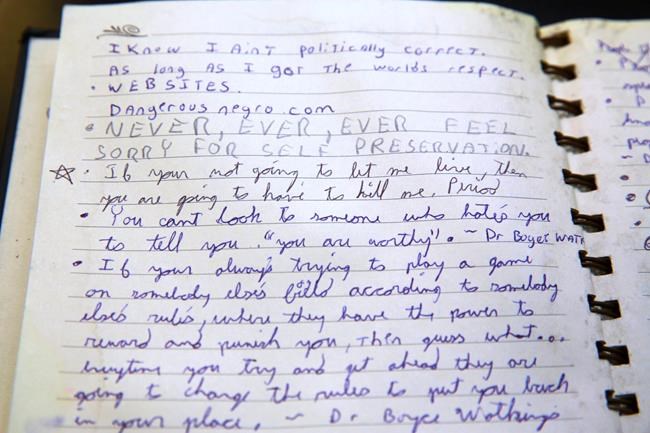 I Know I Ain't politically correct.
As long As I got The worlds respect.
• WEBSITES.
Dangerousnegro.com
• NEVER, EVER, EVER FEEL
SORRY FOR SELF PRESERVATION.
• If your not going to let me live, then
you are going to have to kill me. Period
• You cant look to someone who hates you
to tell you. "you are worthy". ~ Dr Boyce Watk
• If your always trying to play a game
on somebody else's field according to somebody
else's rules, where they have the power to
reward and punish you, Then guess what...
you try and get ahead they are
going to change the rules to put you back
in your place, ~ Dr. Boyce Watkings